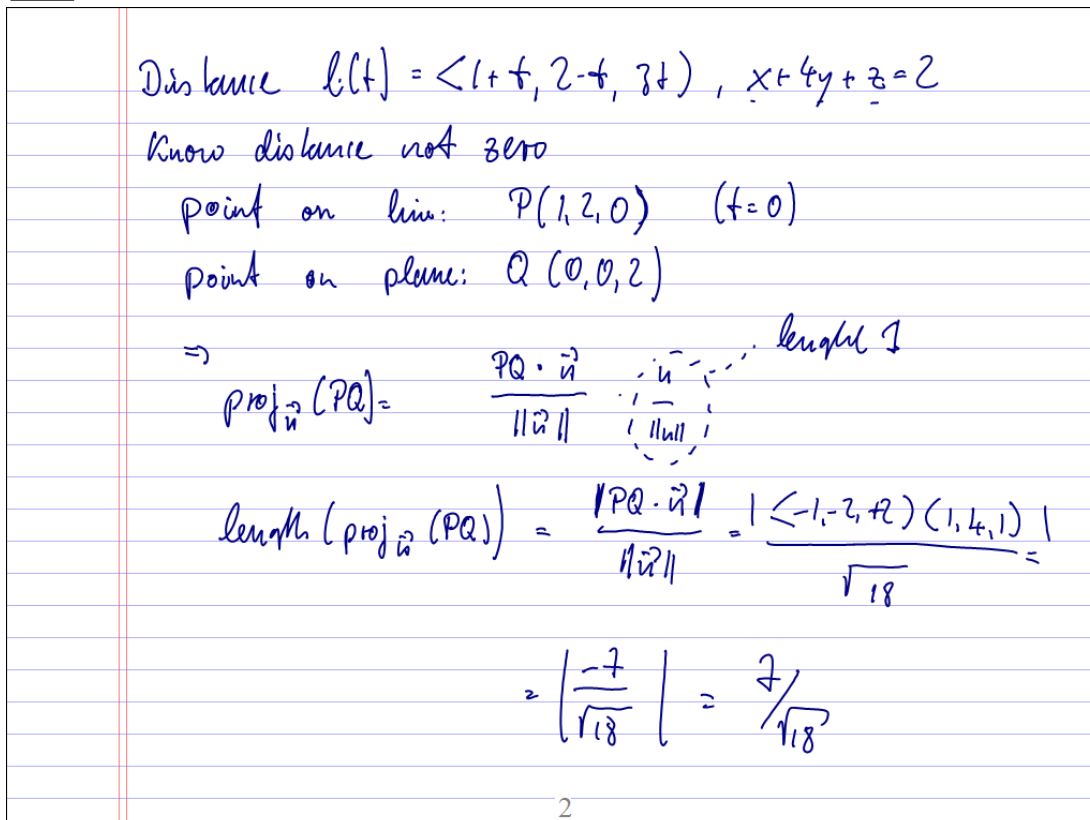 Distance l(t) = <1+t, 2-t, 3t>, x+4y+z=2
Know distance not zero
point on line: P(1,2,0) (t=0)
point on plane: Q(0,0,2)
=> lenght 1
proj_n⃗ (PQ) = PQ · n⃗ / ||n⃗|| · n⃗ / ||n||
length (proj_n⃗ (PQ)) = |PQ · n⃗| / ||n⃗|| = |<-1,-2,+2)(1,4,1)| / √18 =
= |-7/√18| = 7/√18
2